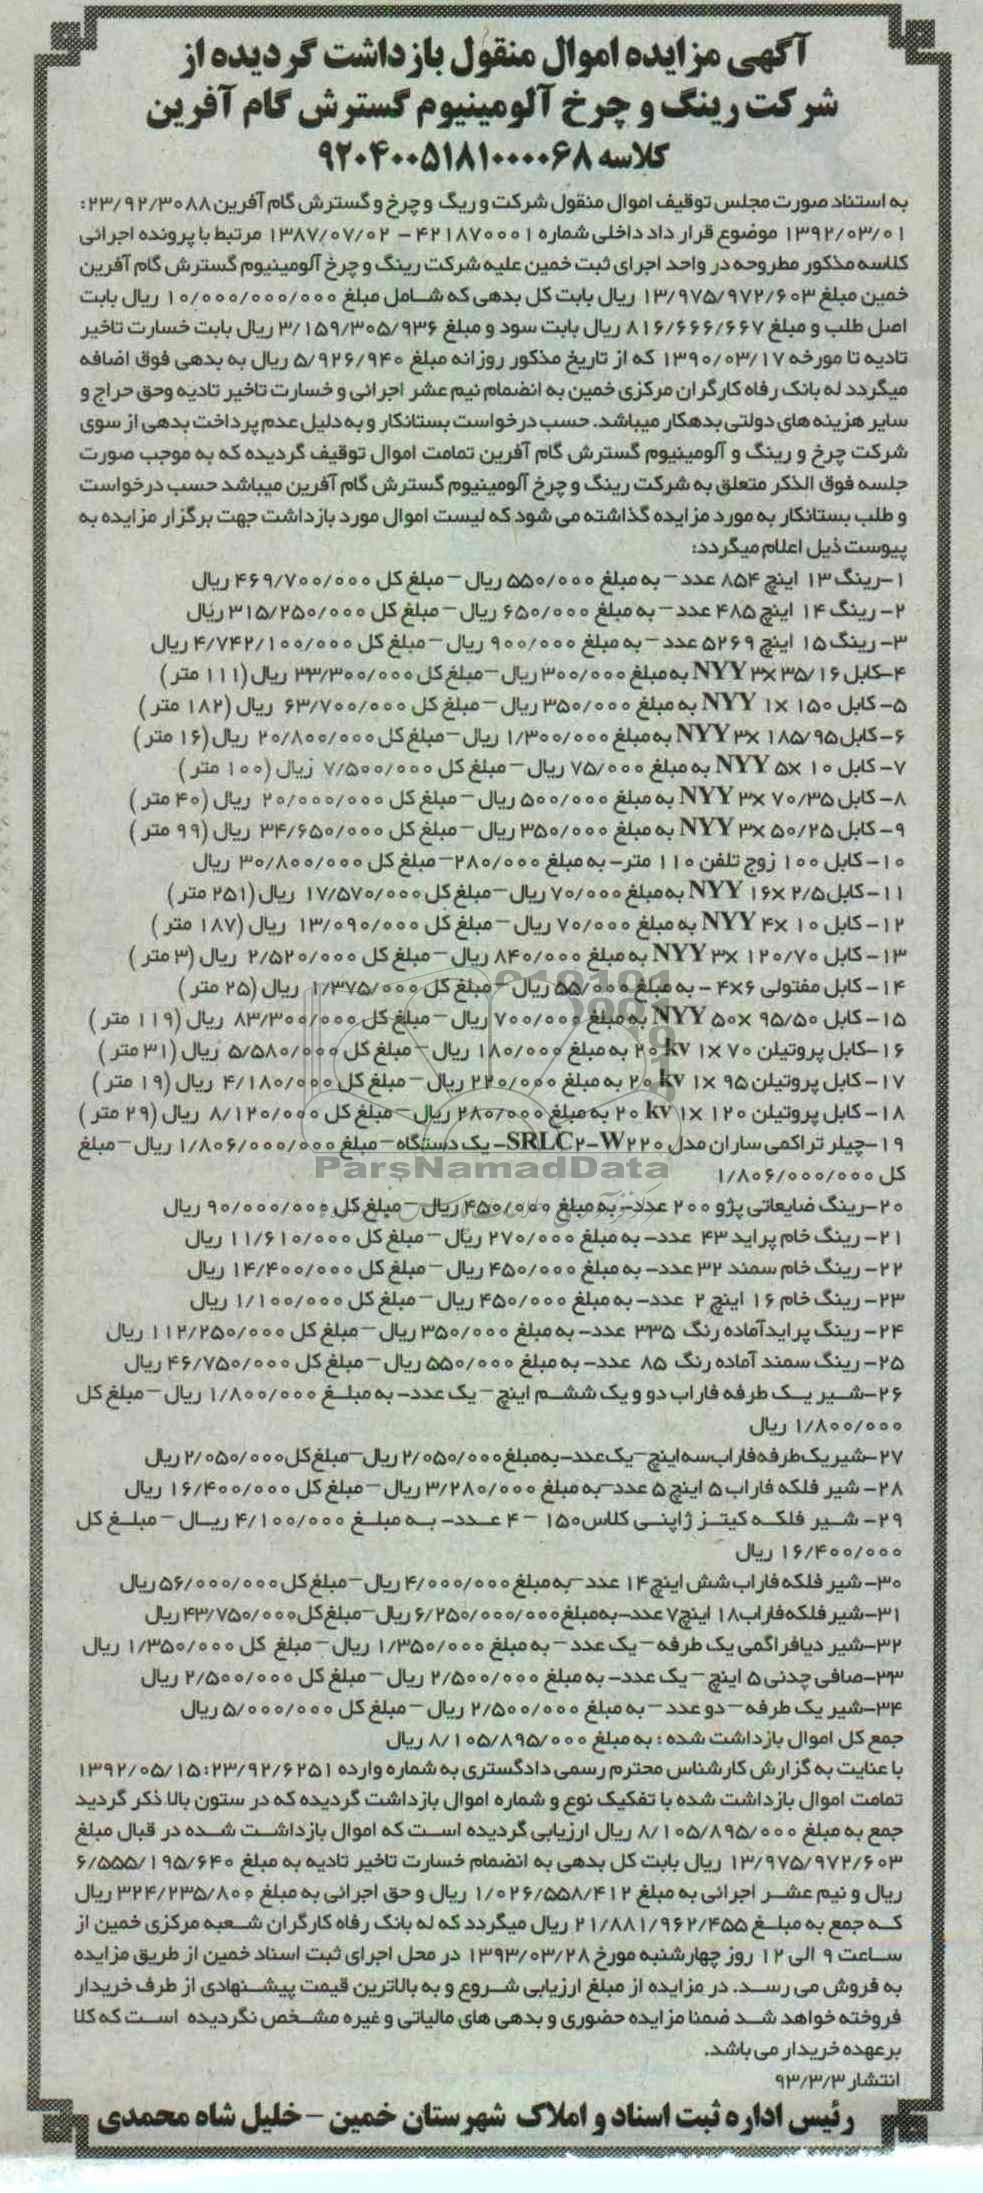 آگهی مزایده اموال منقول بازداشت گردیده از
شرکت رینگ و چرخ آلومینیوم گسترش گام آفرین
کلاسه ۹۲۰۴۰۰۵۱۸۱۰۰۰۰۶۸
به استناد صورت مجلس توقیف اموال منقول شرکت و ریگ و چرخ و گسترش گام آفرین ۲۳/۹۲/۳۰۸۸:
۱۳۹۲/۰۳/۰۱ موضوع قرار داد داخلی شماره ۴۲۱۸۷۰۰۰۱ - ۱۳۸۷/۰۷/۰۲ مرتبط با پرونده اجرائی
کلاسه مذکور مطروحه در واحد اجرای ثبت خمین علیه شرکت رینگ و چرخ آلومینیوم گسترش گام آفرین
خمین مبلغ ۱۳/۹۷۵/۹۷۲/۶۰۳ ریال بابت کل بدهی که شامل مبلغ ۱۰/۰۰۰/۰۰۰/۰۰۰ ریال بابت
اصل طلب و مبلغ ۸۱۶/۶۶۶/۶۶۷ ریال بابت سود و مبلغ ۳/۱۵۹/۳۰۵/۹۳۶ ریال بابت خسارت تاخیر
تادیه تا مورخه ۱۳۹۰/۰۳/۱۷ که از تاریخ مذکور روزانه مبلغ ۵/۹۲۶/۹۴۰ ریال به بدهی فوق اضافه
میگردد له بانک رفاه کارگران مرکزی خمین به انضمام نیم عشر اجرائی و خسارت تاخیر تادیه وحق حراج و
سایر هزینه های دولتی بدهکار میباشد. حسب درخواست بستانکار و به دلیل عدم پرداخت بدهی از سوی
شرکت چرخ و رینگ و آلومینیوم گسترش گام آفرین تمامت اموال توقیف گردیده که به موجب صورت
جلسه فوق الذکر متعلق به شرکت رینگ و چرخ آلومینیوم گسترش گام آفرین میباشد حسب درخواست
و طلب بستانکار به مورد مزایده گذاشته می شود که لیست اموال مورد بازداشت جهت برگزار مزایده به
پیوست ذیل اعلام میگردد:
۱-رینگ ۱۳ اینچ ۸۵۴ عدد - به مبلغ ۵۵۰/۰۰۰ ریال - مبلغ کل ۴۶۹/۷۰۰/۰۰۰ ریال
۲- رینگ ۱۴ اینچ ۴۸۵ عدد - به مبلغ ۶۵۰/۰۰۰ ریال - مبلغ کل ۳۱۵/۲۵۰/۰۰۰ ریال
۳- رینگ ۱۵ اینچ ۵۲۶۹ عدد - به مبلغ ۹۰۰/۰۰۰ ریال - مبلغ کل ۴/۷۴۲/۱۰۰/۰۰۰ ریال
۴-کابل NYY ۳x ۳۵/۱۶ به مبلغ ۳۰۰/۰۰۰ ریال - مبلغ کل ۳۳/۳۰۰/۰۰۰ ریال (۱۱۱ متر)
۵- کابل NYY ۱x ۱۵۰ به مبلغ ۳۵۰/۰۰۰ ریال - مبلغ کل ۶۳/۷۰۰/۰۰۰ ریال (۱۸۲ متر)
۶-کابل NYY ۳x ۱۸۵/۹۵ به مبلغ ۱/۳۰۰/۰۰۰ ریال - مبلغ کل ۲۰/۸۰۰/۰۰۰ ریال (۱۶ متر)
۷- کابل NYY ۵x ۱۰ به مبلغ ۷۵/۰۰۰ ریال - مبلغ کل ۷/۵۰۰/۰۰۰ ریال (۱۰۰ متر)
۸- کابل NYY ۳x ۷۰/۳۵ به مبلغ ۵۰۰/۰۰۰ ریال - مبلغ کل ۲۰/۰۰۰/۰۰۰ ریال (۴۰ متر)
۹- کابل NYY ۳x ۵۰/۲۵ به مبلغ ۳۵۰/۰۰۰ ریال - مبلغ کل ۳۴/۶۵۰/۰۰۰ ریال (۹۹ متر)
۱۰- کابل ۱۰۰ زوج تلفن ۱۱۰ متر- به مبلغ ۲۸۰/۰۰۰ - مبلغ کل ۳۰/۸۰۰/۰۰۰ ریال
۱۱- کابل NYY ۱۶x ۲/۵ به مبلغ ۷۰/۰۰۰ ریال - مبلغ کل ۱۷/۵۷۰/۰۰۰ ریال (۲۵۱ متر)
۱۲- کابل NYY ۴x ۱۰ به مبلغ ۷۰/۰۰۰ ریال - مبلغ کل ۱۳/۰۹۰/۰۰۰ ریال (۱۸۷ متر)
۱۳- کابل NYY ۳x ۱۲۰/۷۰ به مبلغ ۸۴۰/۰۰۰ ریال - مبلغ کل ۲/۵۲۰/۰۰۰ ریال (۳ متر)
۱۴- کابل مفتولی ۴x۶ - به مبلغ ۵۵/۰۰۰ ریال - مبلغ کل ۱/۳۷۵/۰۰۰ ریال (۲۵ متر)
۱۵- کابل NYY ۵۰x ۹۵/۵۰ به مبلغ ۷۰۰/۰۰۰ ریال - مبلغ کل ۸۳/۳۰۰/۰۰۰ ریال (۱۱۹ متر)
۱۶-کابل پروتیلن ۲۰ kv ۱x ۷۰ به مبلغ ۱۸۰/۰۰۰ ریال - مبلغ کل ۵/۵۸۰/۰۰۰ ریال (۳۱ متر)
۱۷- کابل پروتیلن ۲۰ kv ۱x ۹۵ به مبلغ ۲۲۰/۰۰۰ ریال - مبلغ کل ۴/۱۸۰/۰۰۰ ریال (۱۹ متر)
۱۸- کابل پروتیلن ۲۰ kv ۱x ۱۲۰ به مبلغ ۲۸۰/۰۰۰ ریال - مبلغ کل ۸/۱۲۰/۰۰۰ ریال (۲۹ متر)
۱۹-چیلر تراکمی ساران مدل SRLC۲-W۲۲۰- یک دستگاه - مبلغ ۱/۸۰۶/۰۰۰/۰۰۰ ریال - مبلغ
کل ۱/۸۰۶/۰۰۰/۰۰۰
ParsNamadData
۲۰-رینگ ضایعاتی پژو ۲۰۰ عدد- به مبلغ ۴۵۰/۰۰۰ ریال - مبلغ کل ۹۰/۰۰۰/۰۰۰ ریال
۲۱- رینگ خام پراید ۴۳ عدد- به مبلغ ۲۷۰/۰۰۰ ریال - مبلغ کل ۱۱/۶۱۰/۰۰۰ ریال
۲۲- رینگ خام سمند ۳۲ عدد- به مبلغ ۴۵۰/۰۰۰ ریال - مبلغ کل ۱۴/۴۰۰/۰۰۰ ریال
۲۳- رینگ خام ۱۶ اینچ ۲ عدد- به مبلغ ۴۵۰/۰۰۰ ریال - مبلغ کل ۱/۱۰۰/۰۰۰ ریال
۲۴- رینگ پراید آماده رنگ ۳۳۵ عدد- به مبلغ ۳۵۰/۰۰۰ ریال - مبلغ کل ۱۱۲/۲۵۰/۰۰۰ ریال
۲۵- رینگ سمند آماده رنگ ۸۵ عدد- به مبلغ ۵۵۰/۰۰۰ ریال - مبلغ کل ۴۶/۷۵۰/۰۰۰ ریال
۲۶-شیر یک طرفه فاراب دو و یک ششم اینچ - یک عدد- به مبلغ ۱/۸۰۰/۰۰۰ ریال - مبلغ کل
۱/۸۰۰/۰۰۰ ریال
۲۷-شیر یک طرفه فاراب سه اینچ - یک عدد- به مبلغ ۲/۰۵۰/۰۰۰ ریال - مبلغ کل ۲/۰۵۰/۰۰۰ ریال
۲۸- شیر فلکه فاراب ۵ اینچ ۵ عدد- به مبلغ ۳/۲۸۰/۰۰۰ ریال - مبلغ کل ۱۶/۴۰۰/۰۰۰ ریال
۲۹- شیر فلکه کیتز ژاپنی کلاس ۱۵۰ - ۴ عدد- به مبلغ ۴/۱۰۰/۰۰۰ ریال - مبلغ کل
۱۶/۴۰۰/۰۰۰ ریال
۳۰- شیر فلکه فاراب شش اینچ ۱۴ عدد- به مبلغ ۴/۰۰۰/۰۰۰ ریال - مبلغ کل ۵۶/۰۰۰/۰۰۰ ریال
۳۱-شیر فلکه فاراب ۱۸ اینچ ۷ عدد- به مبلغ ۶/۲۵۰/۰۰۰/۰۰۰ ریال - مبلغ کل ۴۳/۷۵۰/۰۰۰ ریال
۳۲-شیر دیافراگمی یک طرفه - یک عدد - به مبلغ ۱/۳۵۰/۰۰۰ ریال - مبلغ کل ۱/۳۵۰/۰۰۰ ریال
۳۳-صافی چدنی ۵ اینچ - یک عدد- به مبلغ ۲/۵۰۰/۰۰۰ ریال - مبلغ کل ۲/۵۰۰/۰۰۰ ریال
۳۴-شیر یک طرفه - دو عدد - به مبلغ ۲/۵۰۰/۰۰۰ ریال - مبلغ کل ۵/۰۰۰/۰۰۰ ریال
جمع کل اموال بازداشت شده : به مبلغ ۸/۱۰۵/۸۹۵/۰۰۰ ریال
با عنایت به گزارش کارشناس محترم رسمی دادگستری به شماره وارده ۲۳/۹۲/۶۲۵۱:۱۳۹۲/۰۵/۱۵
تمامت اموال بازداشت شده با تفکیک نوع و شماره اموال بازداشت گردیده که در ستون بالا ذکر گردید
جمع به مبلغ ۸/۱۰۵/۸۹۵/۰۰۰ ریال ارزیابی گردیده است که اموال بازداشت شده در قبال مبلغ
۱۳/۹۷۵/۹۷۲/۶۰۳ ریال بابت کل بدهی به انضمام خسارت تاخیر تادیه به مبلغ ۶/۵۵۵/۱۹۵/۶۴۰
ریال و نیم عشر اجرائی به مبلغ ۱/۰۲۶/۵۵۸/۴۱۲ ریال و حق اجرائی به مبلغ ۳۲۴/۲۳۵/۸۰۰ ریال
که جمع به مبلغ ۲۱/۸۸۱/۹۶۲/۴۵۵ ریال میگردد که له بانک رفاه کارگران شعبه مرکزی خمین از
ساعت ۹ الی ۱۲ روز چهارشنبه مورخ ۱۳۹۳/۰۳/۲۸ در محل اجرای ثبت اسناد خمین از طریق مزایده
به فروش می رسد. در مزایده از مبلغ ارزیابی شروع و به بالاترین قیمت پیشنهادی از طرف خریدار
فروخته خواهد شد ضمنا مزایده حضوری و بدهی های مالیاتی و غیره مشخص نگردیده است که کلا
برعهده خریدار می باشد.
انتشار ۹۳/۳/۳
رئیس اداره ثبت اسناد و املاک شهرستان خمین - خلیل شاه محمدی